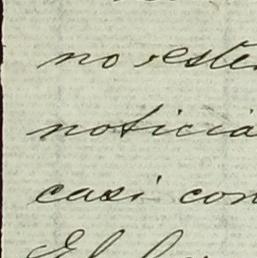 no este
noticia
casi con
El